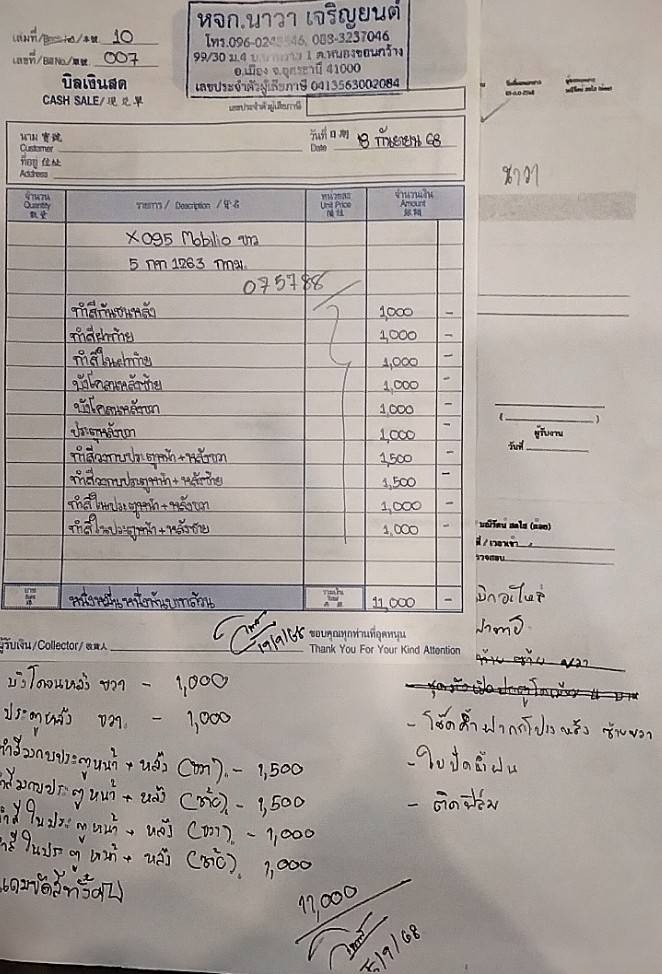 หจก.นาวา เจริญยนต์
เล่มที่/ 10
เลขที่/Bill No./ 007
โทร.096-02 46, 088-3237046
99/30 ม.4 1 ต.หนองขอนกว้าง
อ.เมือง จ.อุดรธานี 41000
เลขประจำตัวผู้เสียภาษี 0413563002084
บิลเงินสด
CASH SALE/現兌單
เลขประจำตัวผู้เสียภาษี
นาม
Customer
วันที่
Date 18 กันยายน 68
ที่อยู่ 住址
Address
นาวา
จำนวน
Quantity
รายการ / Description /
หน่วยละ
Unit Price
จำนวนเงิน
Amount
X095 Mobilio ขาว
5 กก 1263 กทม.
075788
ทำสีกันชนหลัง 1,000 -
ทำสีฝาท้าย 1,000 -
ทำสีในฝาท้าย 1,000 -
บังโคลนหลังซ้าย 1,000 -
บังโคลนหลังขวา 1,000 -
ประตูหลังขวา 1,000 -
ทำสีวงกบประตูหน้า+หลังขวา 1,500 -
ทำสีวงกบประตูหน้า+หลังซ้าย 1,500 -
ทำสีในประตูหน้า+หลังขวา 1,000 -
ทำสีในประตูหน้า+หลังซ้าย 1,000 -
หนึ่งหมื่นหนึ่งพันบาทถ้วน 11,000 -
ผู้รับเงิน/Collector/
19/9/68
ขอบคุณทุกท่านที่อุดหนุน
Thank You For Your Kind Attention
ผู้รับงาน
วันที่
มณีรัตน์ สดใส (ต๋อย)
เบิกอะไหล่
ฝาท้าย
- โช๊คค้ำฝากระโปรงหลัง ซ้ายขวา
- ติดฟิล์ม
บังโคลนหลัง ขวา - 1,000
ประตูหลัง ขวา. - 1,000
ทำสีวงกบประตูหน้า + หลัง (ขวา). - 1,500
ทำสีวงกบประตูหน้า + หลัง (ซ้าย). - 1,500
ทำสีในประตูหน้า + หลัง (ขวา). - 1,000
ทำสีในประตูหน้า + หลัง (ซ้าย). 1,000
แถมขัดสีทั้งคัน
11,000